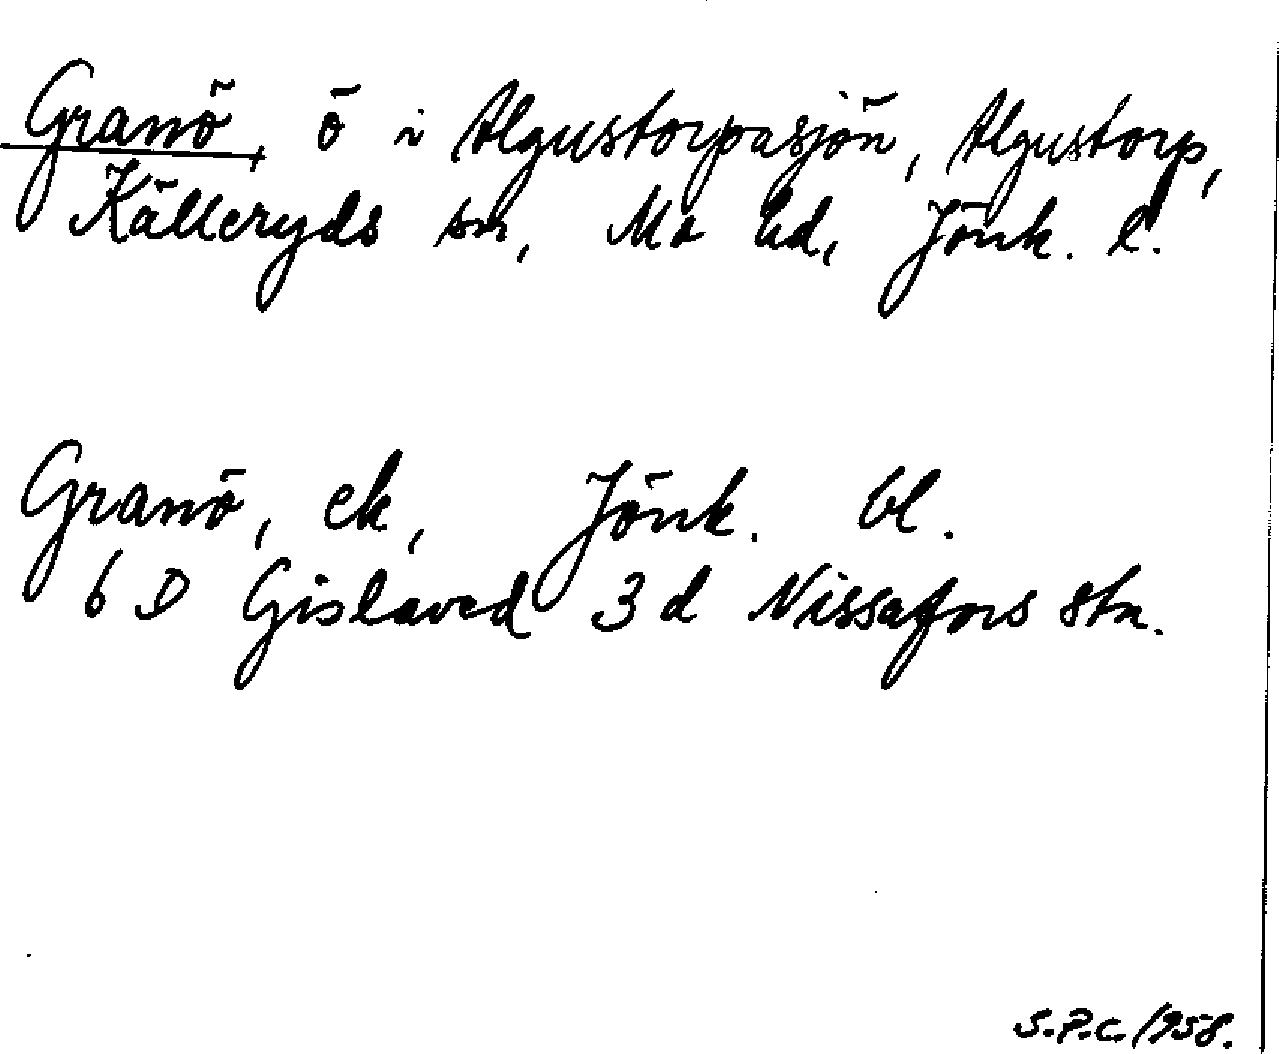 Granö, ö i Algustorpasjön, Algustorp,
Källeryds sn, Mo hd, Jönk. l.
Granö, ek, Jönk. bl.
6 D Gislaved 3 d Nissafors stn.
S.P.C. 1958.